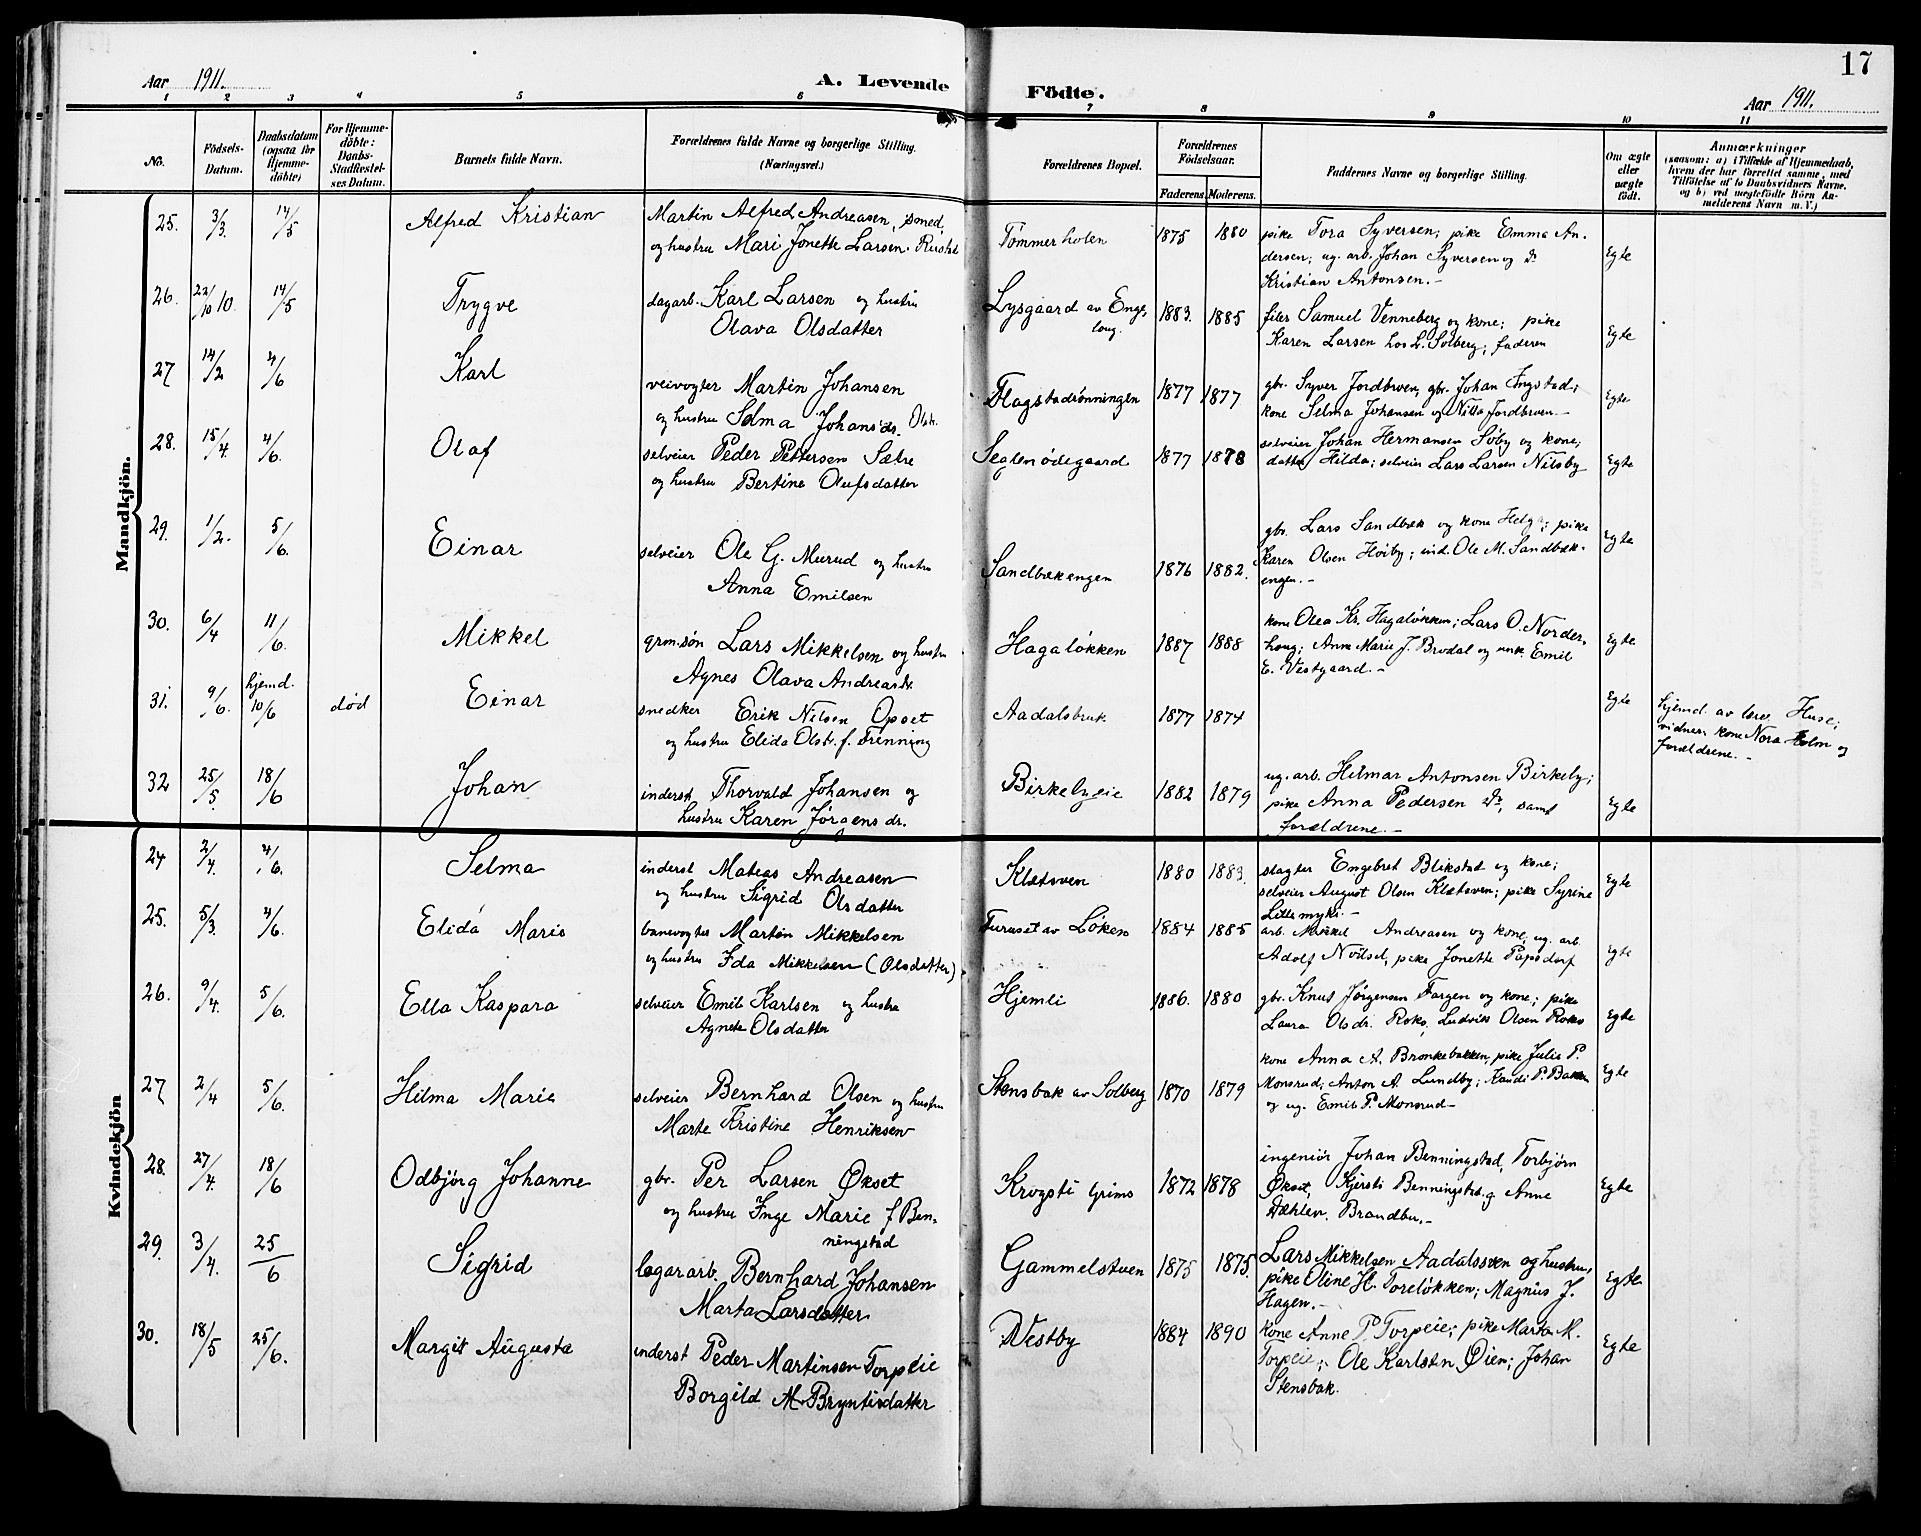 17
Aar 1911.
A. Levende
Födte.
Aar 1911.
1 2 3 4 5 6 7 8 9 10 11
No.
Födsels-
Datum.
Daabsdatum
(ogsaa for
Hjemme-
döbte)
For Hjemme-
döbte:
Daabs-
Stadfæstel-
ses Datum.
Barnets fulde Navn.
Forældrenes fulde Navne og borgerlige Stilling.
(Næringsvei.)
Forældrenes Bopæl.
Forældrenes
Födselsaar.
Faderens. Moderens.
Faddernes Navne og borgerlige Stilling.
Om ægte
eller
uægte
födt.
Anmærkninger
(saasom: a) i Tilfælde af Hjemmedaab,
hvem der har forrettet samme, med
Tilföielse af to Daabsvidners Navne,
og b) ved uægtefödte Börn An-
melderens Navn m. V.)
Mandkjön.
25. 3/3 14/5 Alfred Kristian
Martin Alfred Andreasen, smed,
og hustru Mari Jonette Larsen
Tømmerholen 1875 1880
pike Tora Syversen; pike Emma An-
dersen; ug. arb. Johan Syversen og
Kristian Antonsen.-
Egte
26. 22/10 10. 14/5 Trygve
dagarb. Karl Larsen og hustru
Olava Olsdatter
Lysgaard av Enge,
loug. 1883. 1885
filer Samuel Venneberg og kone; pike
Karen Larsen hos L. Solberg; faderen
Egte
27 14/2 4/6 Karl
veivogter Martin Johansen
og hustru Selma Johansdr.
Flagstadrønningen 1877 1877
gbr. Syver Jordbruen, gbr. Johan Ingstad;
kone Selma Johansen og Nilla Jordbruen.-
Egte
28. 15/4. 4/6. Olaf
selveier Peder Pettersen Sætre
og hustru Bertine Olufsdatter
Seglenødegaard 1877 1878
selveier Johan Hermansen Søby og kone;
datter Hilda; selveier Lars Larsen Nilsby
Egte
29. 1/2. 5/6. Einar
selveier Ole G. Murud og hustru
Anna Emilsen
Sandbækengen 1876 1882.
gbr. Lars Sandbæk og kone Helga; pike
Karen Olsen Høiby; ind. Ole M. Sandbæk-
engen.-
Egte
30. 6/4 11/6. Mikkel
grm.søn Lars Mikkelsen og hustru
Agnes Olava Andreasdr.
Hagaløkken 1887 1888
kone Olea Kr. Hagaløkken; Lars O. Norder-
houg; Anne Marie J. Brodal og unk. Emil
E. Vestgaard.-
Egte
31. 9/6. hjemd.
10/6 død Einar
snedker Erik Nilsen Opset
og hustru Elida Olsdr. f. Frenning
Aadalsbruk 1877 1874
Egte
hjemd. av lærer Huse;
vidner: kone Nora Holm og
forældrene.-
32 25/5. 18/6 Johan
inderst Thorvald Johansen og
hustru Karen Jørgensdr.
Birkebyeie 1882 1879
ug. arb. Hilmar Antonsen Birkeby;
pike Anna Pedersen samt
forældrene.-
Egte
Kvindekjön
24 2/4. 4/6. Selma
inderst Mateas Andreasen
og hustru Sigrid Olsdatter
Kletsven 1880 1883.
slagter Engebret Blikstad og kone;
selveier August Olsen Kletsven; pike Syrine
Lillemyhr.-
Egte
25. 5/3. 4/6. Elida Marie
banevogter Martin Mikkelsen
og hustru Ida Mikkelsen (Olsdatter)
Furuset av Løken 1884 1885
arb. Mikkel Andreasen og kone, ug. arb.
Adolf Nødset, pike Jonette Papsdorf
Egte
26. 9/4. 5/6. Ella Kaspara
selveier Emil Karlsen og hustru
Agnete Olsdatter
Hjemli 1886. 1880
gbr. Knut Jørgensen Fargen og kone; pike
Laura Olsdr. Roko, Ludvik Olsen Roko
Egte
27 2/4 5/6. Hilma Marie
selveier Bernhard Olsen og hustru
Marte Kristine Henriksen
Stensbak av Solberg 1870 1879
kone Anna A. Bronkebakken, pike Julie P.
Monsrud; Anton A. Lundby; Kandi P. Bakken
og ug. Emil P. Monsrud-
Egte
28. 27/4. 18/6 Odbjørg Johanne
gbr. Per Larsen Økset
og hustru Inge Marie f Ben-
ningstad
Krogsti Grims 1872 1878
ingeniør Johan Benningstad, Torbjørn
Økset, Kjersti Benningstad og Anne
Dæhlen. Brandbu.-
Egte
29. 3/4. 25/6 Sigrid
lagerarb. Bernhard Johansen
Marta Larsdatter
Gammelstuen 1875 1875.
Lars Mikkelsen Aadalssven og hustru,
pike Oline H. Toreløkken; Magnus J.
Hagen.-
Egte
30. 18/5 25/6. Margit Augusta
inderst Peder Martinsen Torpeie
Borgild M. Bryntisdatter
Westby 1884 1890
kone Anne P. Torpeie; pike Marta M.
Torpeie; Ole Karlsen Øien; Johan
Stensbak.
Egte